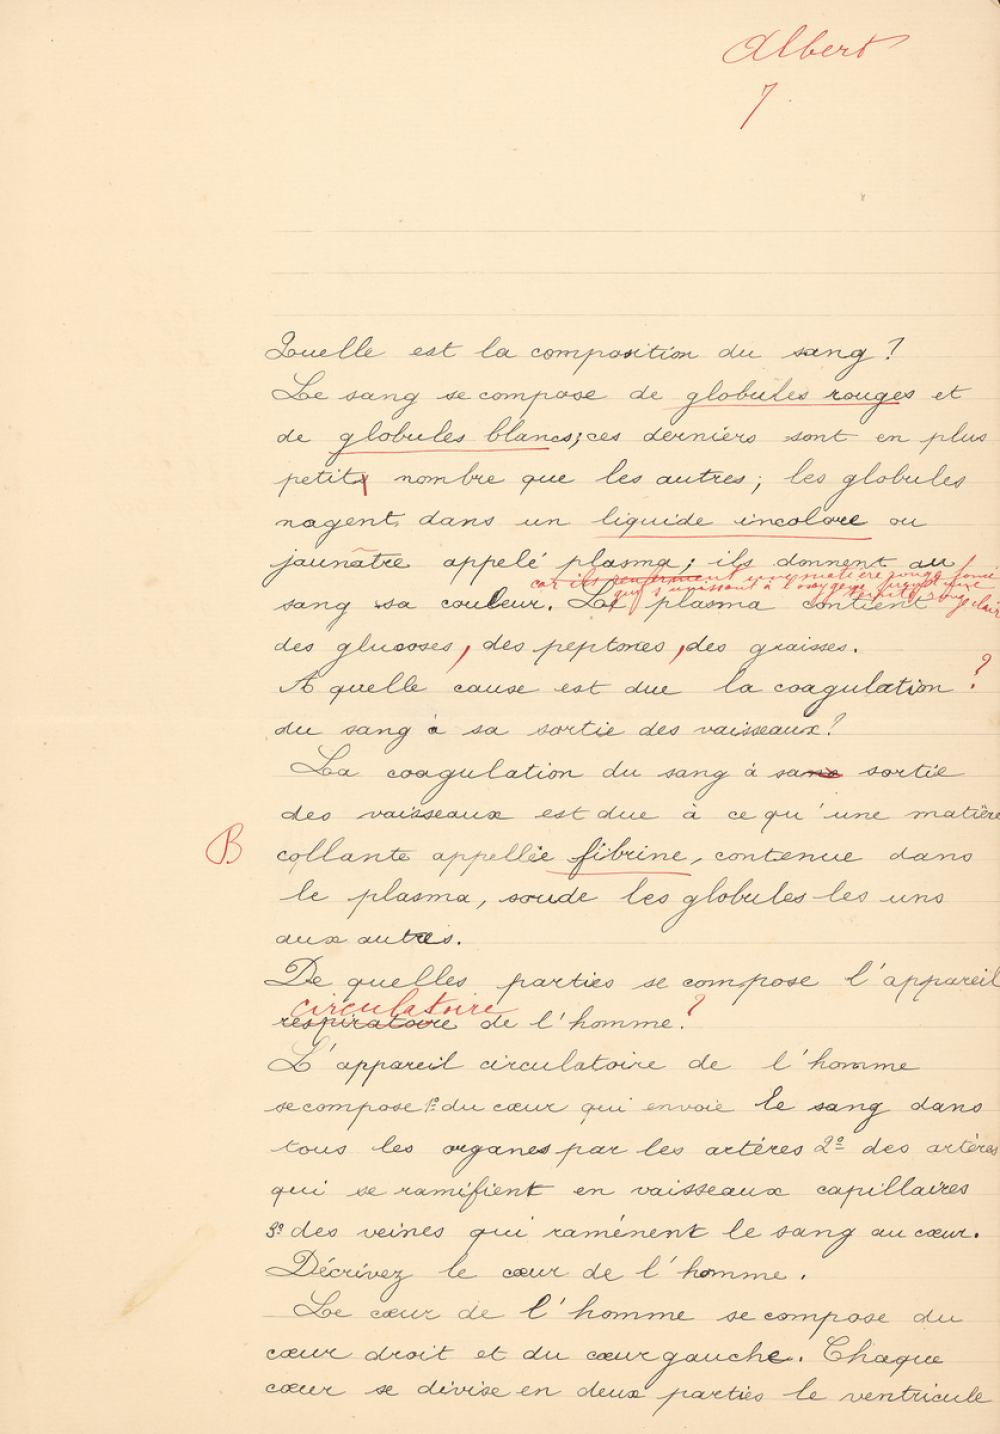 Albert
7
Quelle est la composition du sang ?
Le sang se compose de globules rouges et
de globules blancs; ces derniers sont en plus
petits nombre que les autres; les globules
nagent dans un liquide incolore ou
jaunâtre appelé plasma; ils donnent au
car ils renferment une matière rouge foncé
qui s'unissant à l'oxygène
sang sa couleur. Le plasma contient
des glucoses, des peptones, des graisses.
A quelle cause est due la coagulation ?
du sang à sa sortie des vaisseaux?
La coagulation du sang à sa sortie
des vaisseaux est due à ce qu'une matière
B
collante appellée fibrine, contenue dans
le plasma, soude les globules les uns
aux autres.
De quelles parties se compose l'appareil
circulatoire ?
respiratoire de l'homme.
L'appareil circulatoire de l'homme
se compose 1º du cœur qui envoie le sang dans
tous les organes par les artères 2º des artères
qui se ramifient en vaisseaux capillaires
3º des veines qui ramènent le sang au cœur.
Décrivez le cœur de l'homme.
Le cœur de l'homme se compose du
cœur droit et du cœur gauche. Chaque
cœur se divise en deux parties le ventricule